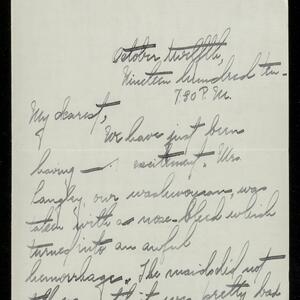 October twelfth,
Nineteen hundred ten-
7.30 P.M.
My dearest,
We have just been
having — excitement. Mrs.
Langley, our washwoman, was
taken with a nose-bleed which
turned into an awful
hemorrhage. The maids did not
it was pretty bad